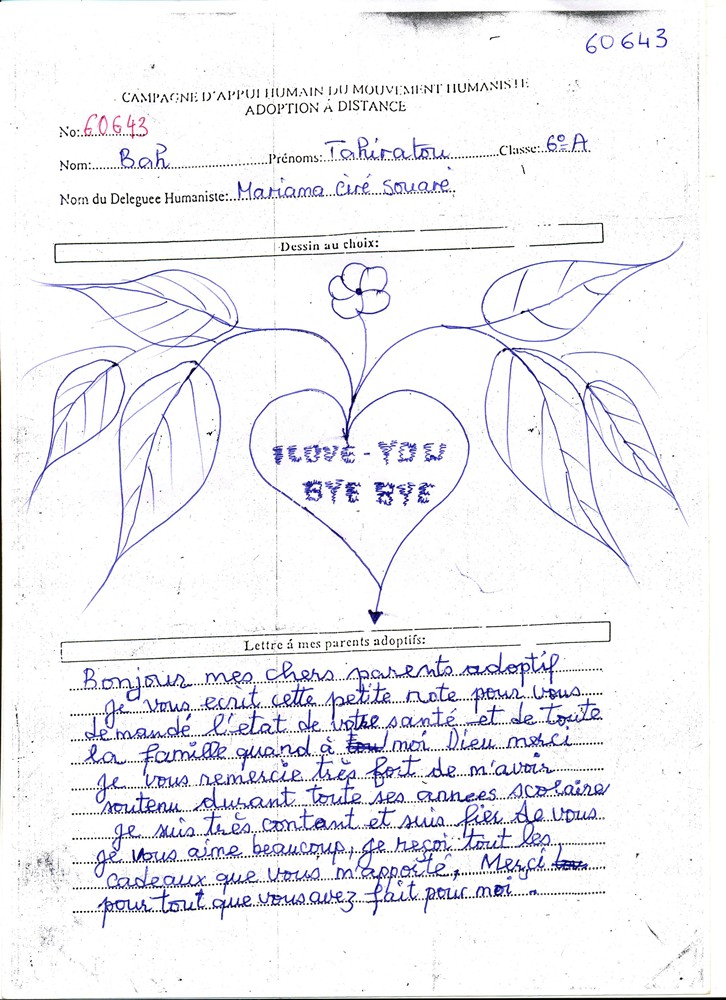 60643
CAMPAGNE D'APPUI HUMAIN DU MOUVEMENT HUMANISTE
ADOPTION À DISTANCE
No: 60643
Nom: Bah Prénoms: Tahiratou Classe: 6º A
Nom du Deleguee Humaniste: Mariama Ciré Souaré
Dessin au choix:
I LOVE - YOU
BYE BYE
Lettre á mes parents adoptifs:
Bonjour mes chers parents adoptif
je vous ecrit cette petite note pour vous
demandé l'etat de votre santé et de toute
la famille quand à moi Dieu merci
je vous remercie très fort de m'avoir
soutenu durant toute ses annees scolaire
je suis très contant et suis fier de vous
je vous aime beaucoup, je reçoi tout les
cadeaux que vous m'apporté, Merci
pour tout que vous avez fait pour moi.